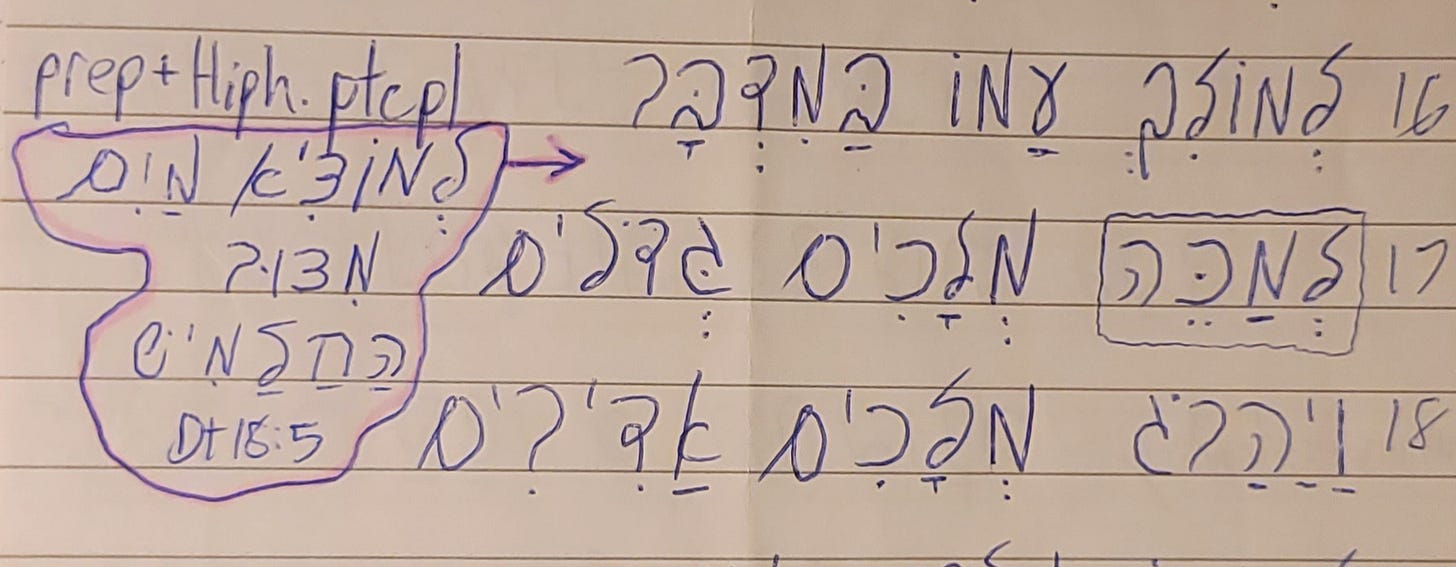 prep+Hiph. ptcpl
לְמוֹצִיא מַיִם
מצוּר
הַחַלַמִישׁ
Dt 18:5
16 לְמוֹלִךְ עַמוֹ בַּמִדְבָּר
17 לְמַכֵּה מְלָכִים גְּדֹלִים
18 וַיַּהַרֹג מְלָכִים אַדִירִים